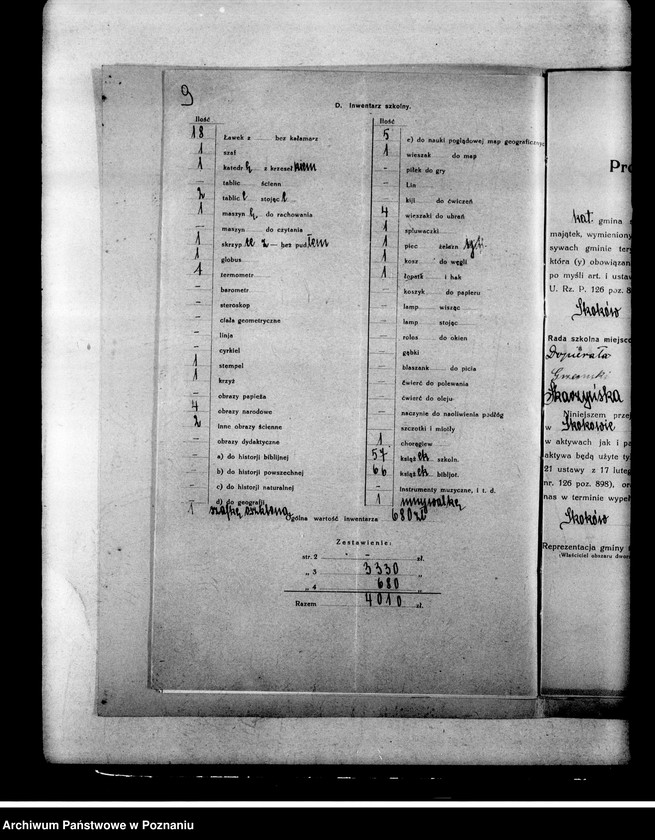 9
D. Inwentarz szkolny.
Ilość
18 Ławek z bez kałamarz
1 szaf
1 katedr z krzeseł kiem
— tablic ścienn
2 tablic stojąc
1 maszyn do rachowania
— maszyn do czytania
1 skrzyp bez pud łem
1 globus
1 termometr
— barometr
— steroskop
— ciała geometryczne
— linja
— cyrkiel
1 stempel
1 krzyż
— obrazy papieża
4 obrazy narodowe
2 inne obrazy ścienne
— obrazy dydaktyczne
— a) do historji biblijnej
— b) do historji powszechnej
— c) do historji naturalnej
d) do geografji
1 szafkę szkloną
Ilość
5 e) do nauki poglądowej map geograficznyc
1 wieszak do map
— piłek do gry
— Lin
— kiji do ćwiczeń
4 wieszaki do ubrań
1 spluwaczki
1 piec żelazn
1 kosz do węgli
1 łopatk i hak
— koszyk do papieru
— lamp wisząc
— lamp stojąc
— rolos do okien
— gąbki
— blaszank do picia
— ćwierć do polewania
— ćwierć do oleju
— naczynie do naoliwienia podłóg
szczotki i miotły
1 chorągiew
57 książ ek szkoln.
66 książ ek bibljot.
— Instrumenty muzyczne, i t. d.
1 umywalkę
Ogólna wartość inwentarza 680 zł
Zestawienie:
str. 2 — zł.
„ 3 3330 „
„ 4 680 „
Razem 4010 zł.
Pro
kat. gmina
majątek, wymieniony
sywach gminie ter
która (y) obowiązan
po myśli art. i ustaw
U. Rz. P. 126 poz. 8
Skoków
Rada szkolna miejsco
Dopierała
Skarzyńska
Niniejszem prze
w Skokowie
w aktywach jak i pa
aktywa będą użyte ty
21 ustawy z 17 luteg
nr. 126 poz. 898), or
nas w terminie wypeł
Skoków
Reprezentacja gminy
(Właściciel obszaru dwor
Archiwum Państwowe w Poznaniu